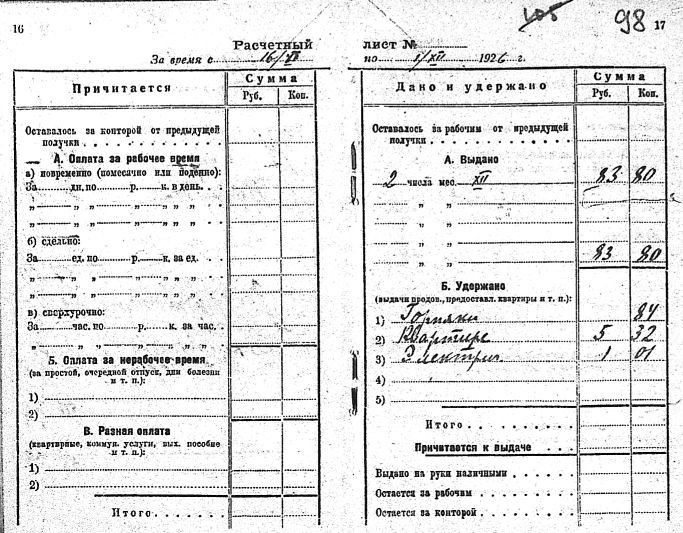 16
Расчетный
За время с 16/XI
Причитается
Сумма
Руб. Коп.
Оставалось за конторой от предыдущей
получки
А. Оплата за рабочее время
а) повременно (помесячно или поденно):
За дн. по р. к. в день.
„ „ „ „ „ „
„ „ „ „ „ „
б) сдельно:
За ед. по р. к. за ед.
„ „ „ „ „ „
„ „ „ „ „ „
в) сверхурочно:
За час. по р. к. за час.
„ „ „ „ „ „
Б. Оплата за нерабочее время
(за простой, очередной отпуск, дни болезни
и т. п.):
1)
2)
В. Разная оплата
(квартирные, коммун. услуги, вых. пособие
и т. п.):
1)
2)
Итого
105
98 17
лист №
по 1/XII 1926 г.
Дано и удержано
Сумма
Руб. Коп.
Оставалось за рабочим от предыдущей
получки
А. Выдано
2 числа мес. XII 83 80
„ „
„ „
„ „
83 80
Б. Удержано
(выдачи продов., предоставл. квартиры и т. п.):
1) 84
2) Квартире 5 32
3) Электрич 1 01
4)
5)
Итого
Причитается к выдаче
Выдано на руки наличными
Остается за рабочим
Остается за конторой